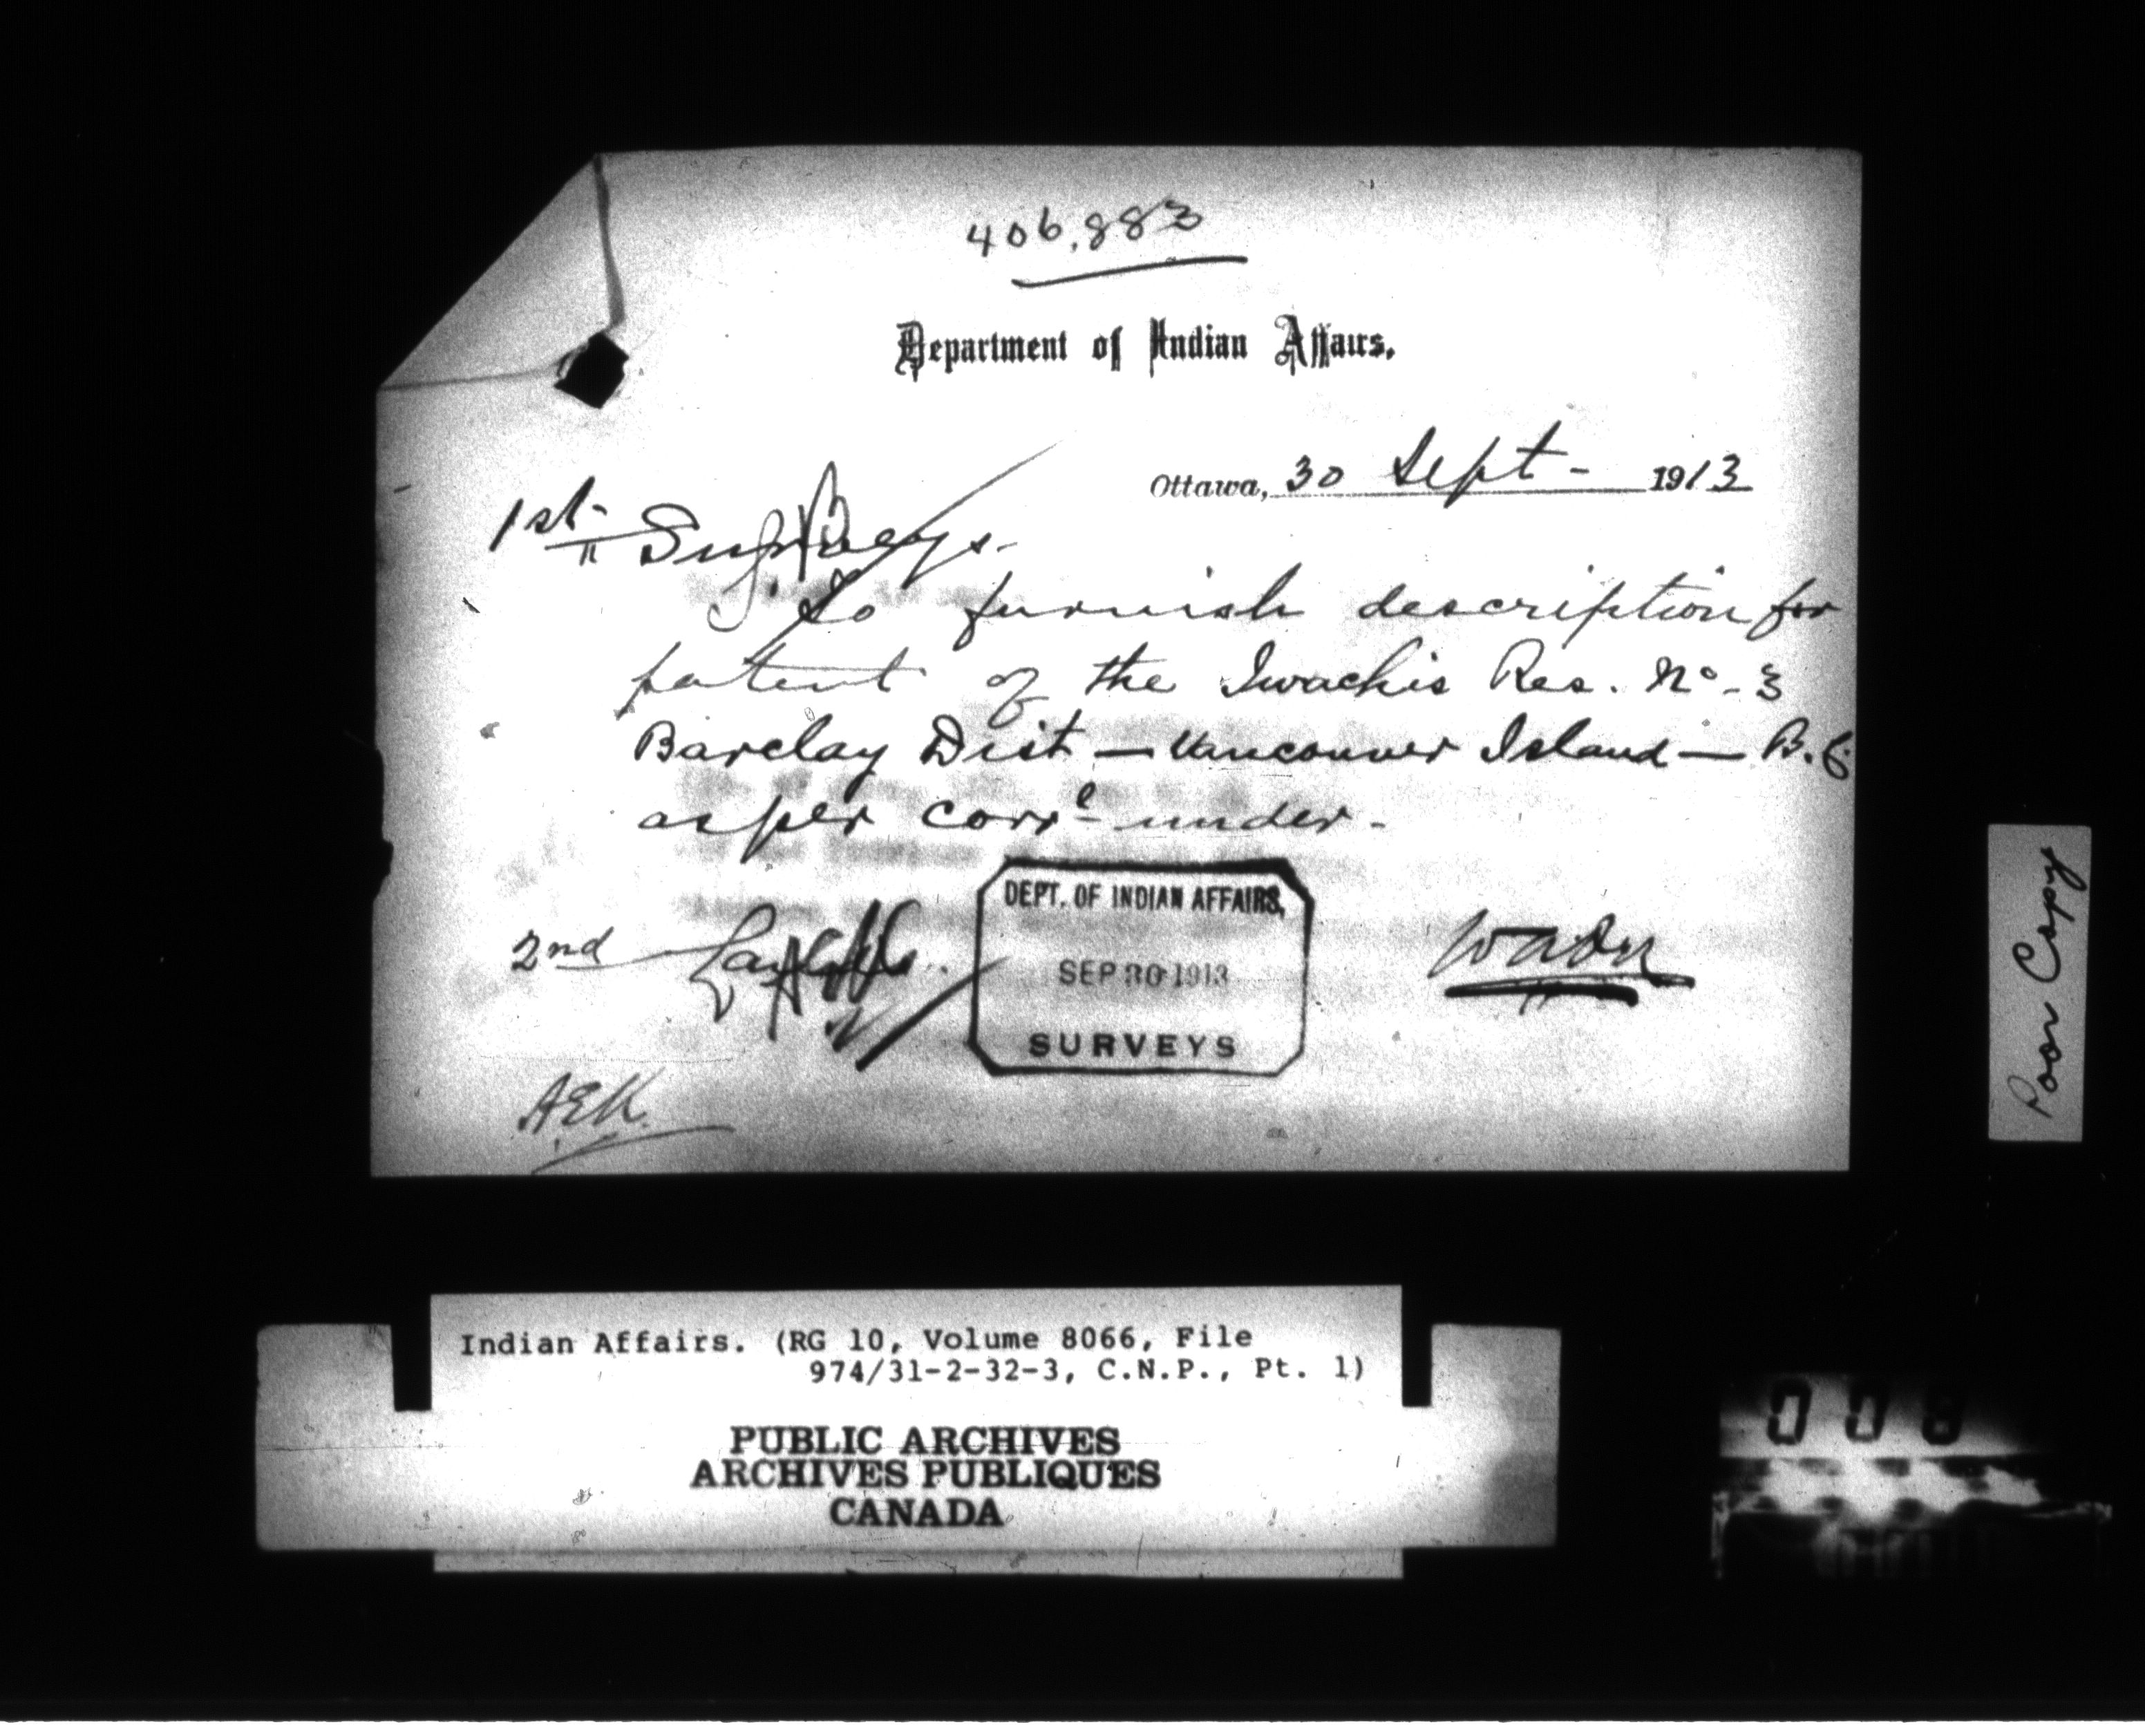 406,883
Department of Indian Affairs.
Ottawa, 30 Sept - 1913
1st - Surveys.
To furnish description for
patent of the Iwachis Res. No. 3
Barclay Dist — Vancouver Island — B.C.
as per corre under.
DEPT. OF INDIAN AFFAIRS,
SEP 30 1913
SURVEYS
2nd
A.E.K.
Poor Copy
Indian Affairs. (RG 10, Volume 8066, File
974/31-2-32-3, C.N.P., Pt. 1)
PUBLIC ARCHIVES
ARCHIVES PUBLIQUES
CANADA
008